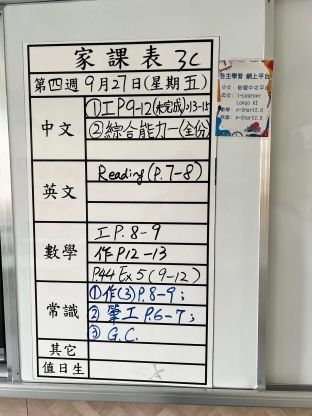 家課表 3C
第四週 9月27日(星期五)
中文
①工P9-12(未完成)213-15
②綜合能力一(全份)
英文
Reading(P.7-8)
數學
工P.8-9
作P12-13
P44 Ex5(9-12)
常識
①作(3)P.8-9;
②筆工P.6-7;
③G.C.
其它
值日生
自主學習 網上平台
i-Learner
Lango AI
e-Smart2.0
e-Smart2.0